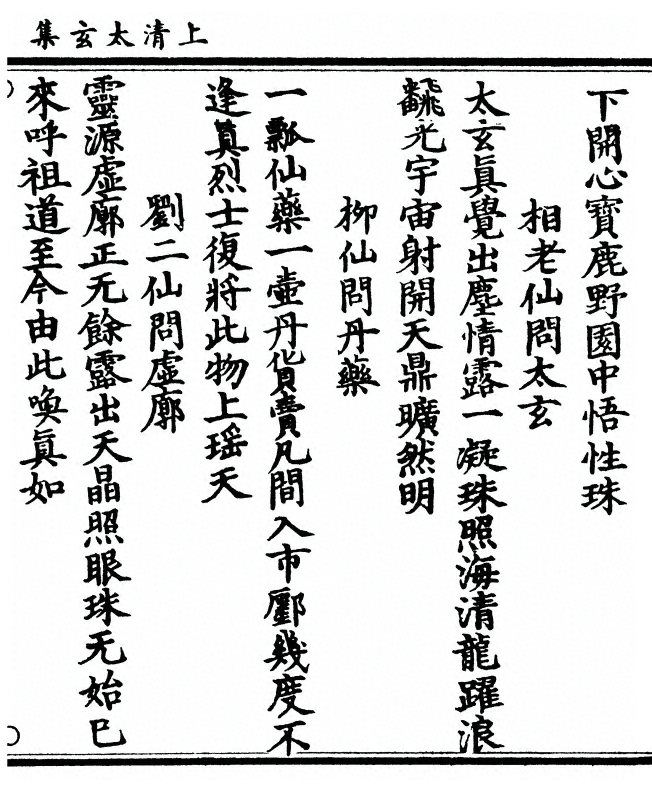 上清太玄集
下開心寶鹿野園中悟性珠
相老仙問太玄
太玄眞覺出塵情露一凝珠照海清龍躍浪
飜光宇宙射開天鼎曠然明
柳仙問丹藥
一瓢仙藥一壺丹貨賣凡間入市鄽幾度不
逢眞烈士復將此物上瑶天
劉二仙問虛廓
靈源虛廓正无餘露出天晶照眼珠无始巳
來呼祖道至今由此喚眞如